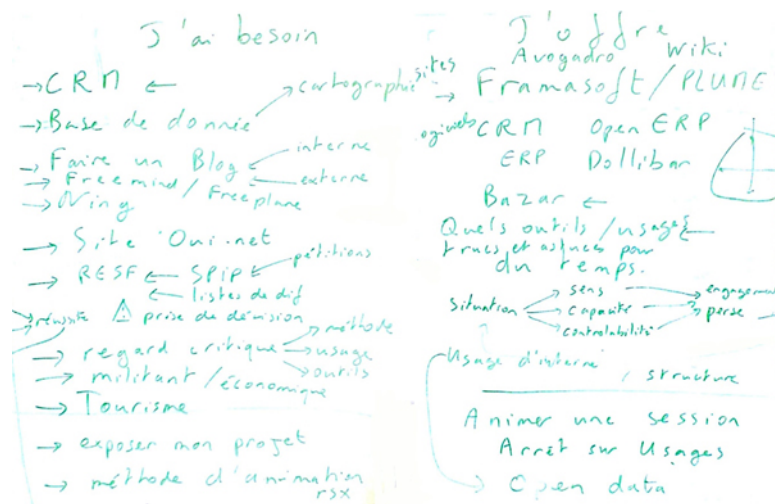 J'ai besoin
→ CRM ←
→ Base de donnée → cartographie
→ Faire un Blog ← interne
← externe
→ Freemind / Freeplane
→ Ning
→ Site Oui.net
→ RESF ← SPIP ← pétitions
← listes de dif
→ réussite ⚠ prise de décision
→ regard critique → méthode
→ usage
→ outils
→ militant / économique
→ Tourisme
→ exposer mon projet
→ méthode d'animation
rsx
J'offre
Avogadro Wiki
sites → Framasoft / PLUME
ogiciels CRM Open ERP
ERP Dollibar
Bazar ←
Quels outils / usages ←
trucs et astuces pour
du temps.
Situation → sens → engagement
→ capacité → perse
→ controlabilité
Usage d'interne
/ structure
Animer une session
Arrêt sur Usages
→ Open data